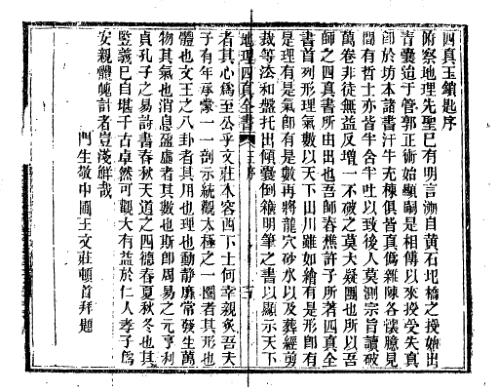 四真玉鎖匙序
俯察地理先聖已有明言溯自黃石圯橋之授始出
青囊迨于管郭正術始顯嗣是相傳以來授受失真
即於坊本諸書汗牛充棟俱皆真偽雜陳各懷臆見
間有哲士亦皆半含半吐以致後人莫測宗旨讀破
萬卷非徒無益反增一不破之莫大疑團也所以吾
師之四真書所出也吾師春樵許子所著四真全
書首列形理氣數以天下山川雖如繪有是形即有
是理有是氣即有是數再將龍穴砂水以及葬經剪
裁等法和盤托出傾囊倒篋明筆之書以顯示天下
地理四真全書 王序
者其心為至公乎文莊本容西下士何幸親炙吾夫
子有年承蒙一一剖示統觀太極之一圈者其形也
體也文王之八卦者其用也理也動靜靡常發生萬
物其氣也消息盈虛者其數也斯即周易之元亨利
貞孔子之易詩書春秋天道之四德春夏秋冬也其
豎義已自堪千古卓然可觀大有益於仁人孝子為
安親體魄計者豈淺鮮哉
門生敬中圃王文莊頓首拜題